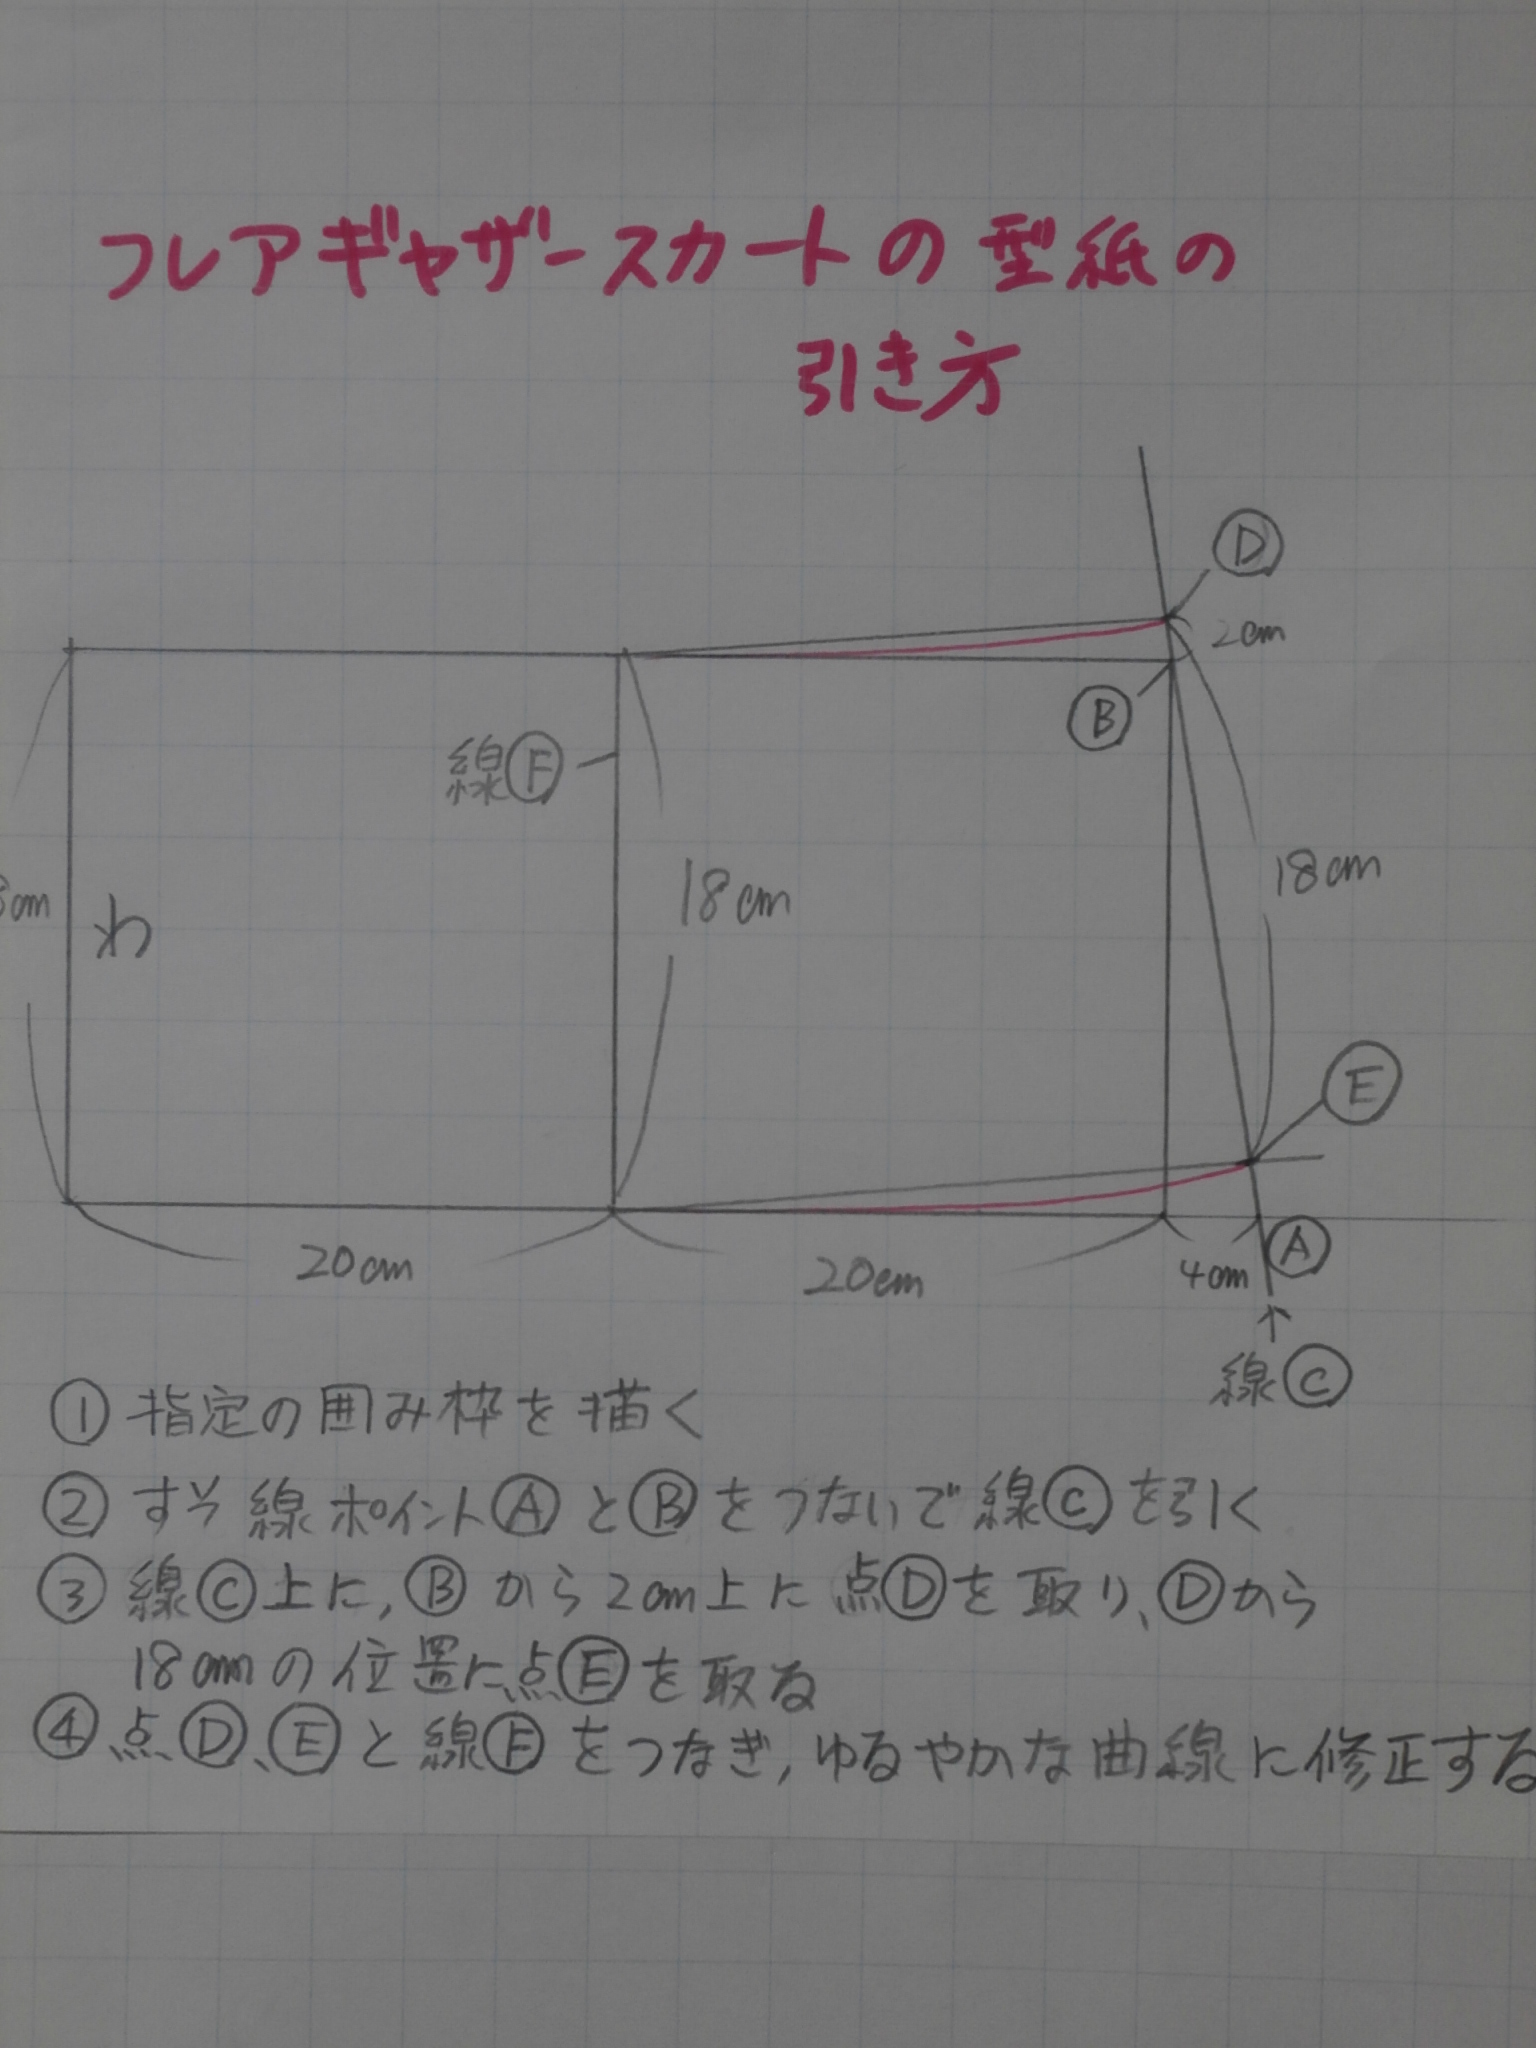 フレアギャザースカートの型紙の
引き方
D
2cm
B
線F
18cm
18cm
cm
わ
E
20cm
20cm
4cm
A
↑
線C
① 指定の囲み枠を描く
② すそ線ポイントⒶとⒷをつないで線Ⓒを引く
③ 線Ⓒ上に,Ⓑから2cm上に点Ⓓを取り、Ⓓから
18cmの位置に点Ⓔを取る
④ 点Ⓓ、Ⓔと線Ⓕをつなぎ,ゆるやかな曲線に修正する